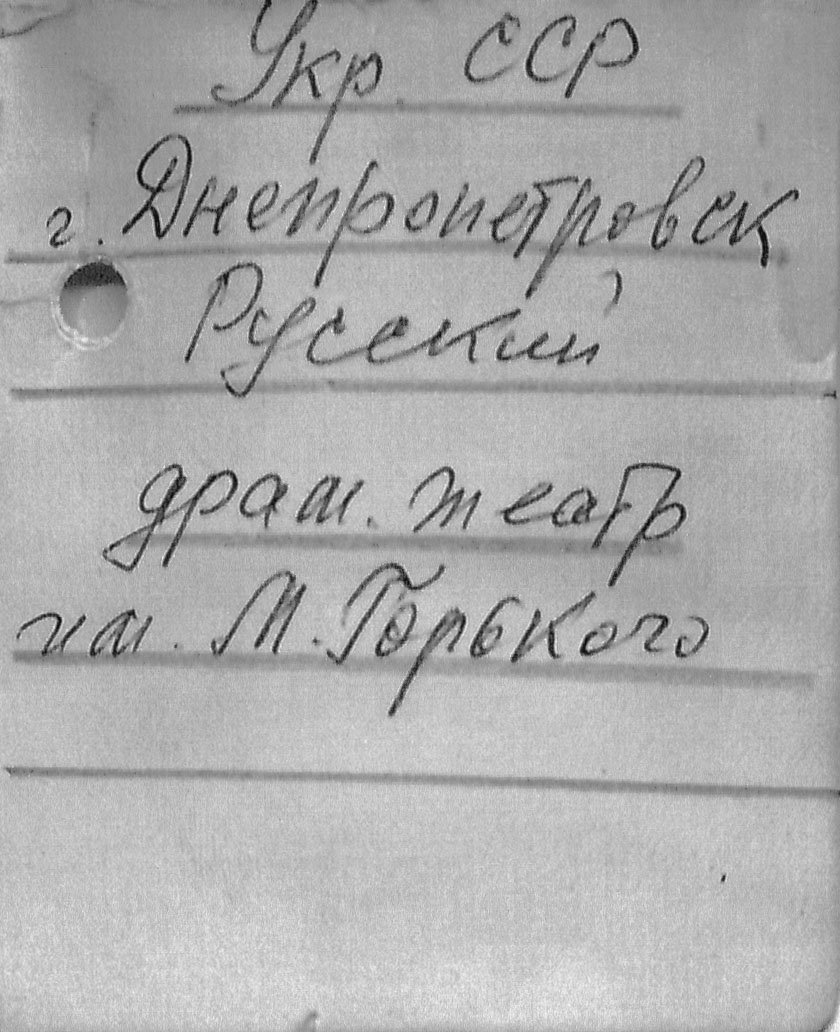 Укр. ССР
г. Днепропетровск
Русский
драм. театр
им. М. Горького